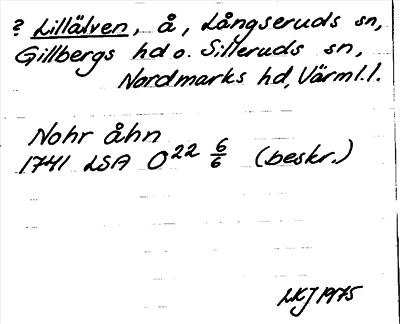 ? Lillälven, å, Långseruds sn,
Gillbergs hd o. Silleruds sn,
Nordmarks hd, Värml.l.
Nohr åhn
1741 LSA O22 6/6 (beskr.)
LKJ 1975